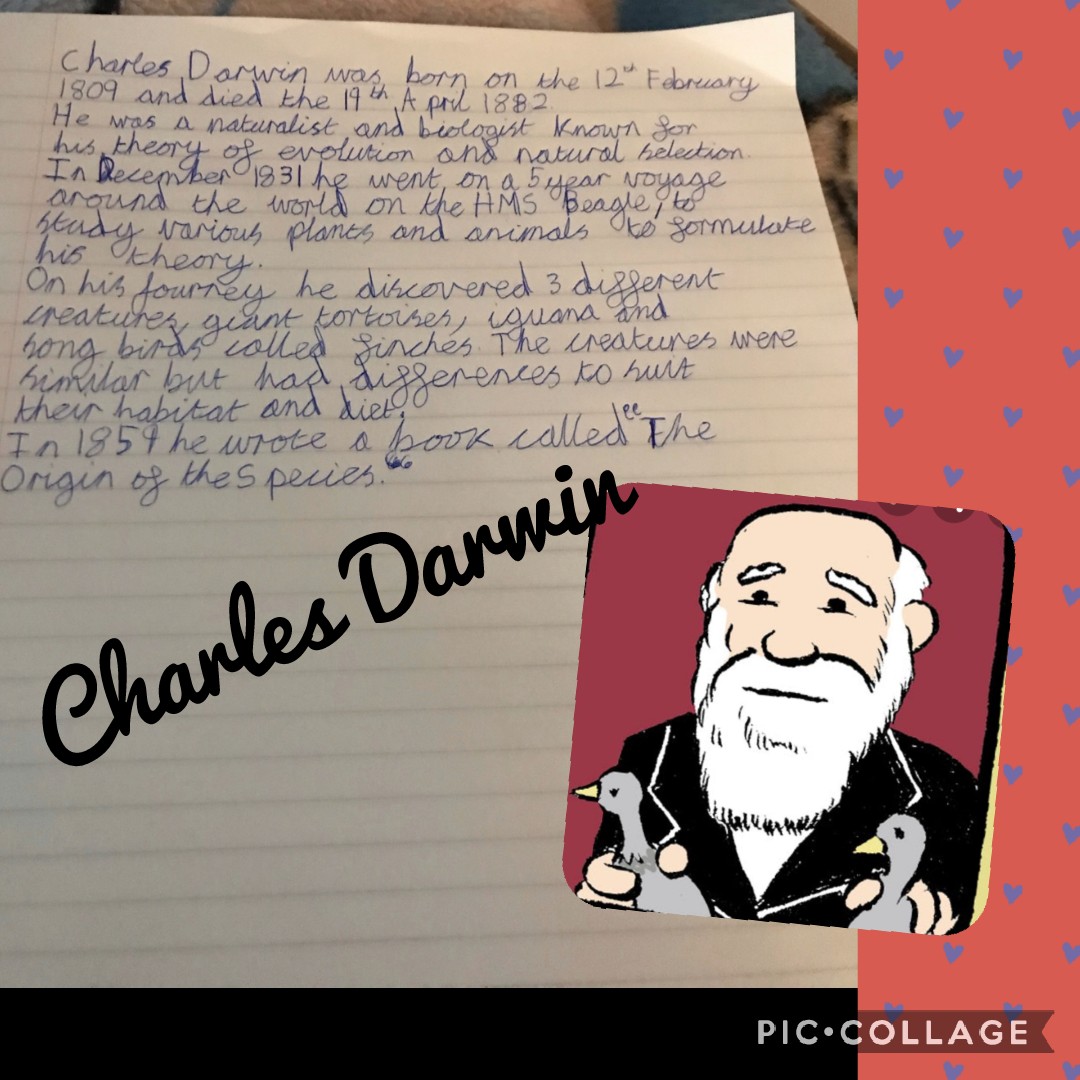 Charles Darwin was born on the 12th February
1809 and died the 19th April 1882.
He was a naturalist and biologist known for
his theory of evolution and natural selection.
In December 1831 he went on a 5 year voyage
around the world on the HMS Beagle, to
study various plants and animals to formulate
his theory.
On his journey he discovered 3 different
creatures, giant tortoises, iguana and
song birds called finches. The creatures were
similar but had differences to suit
their habitat and diet.
In 1859 he wrote a book called "The
Origin of the Species."
Charles Darwin
PIC•COLLAGE